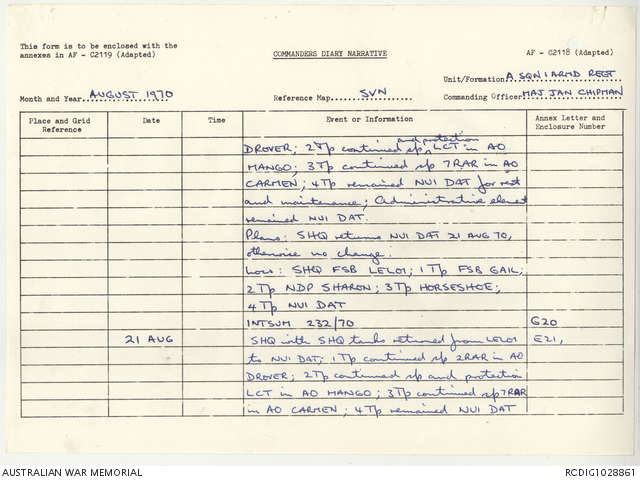 This form is to be enclosed with the
annexes in AF - C2119 (Adapted)
COMMANDERS DIARY NARRATIVE
AF - C2118 (Adapted)
Unit/Formation A SQN 1 ARMD REGT
Month and Year AUGUST 1970
Reference Map SVN
Commanding Officer MAJ JAN CHIPMAN
Place and Grid Reference
Date
Time
Event or Information
Annex Letter and Enclosure Number
and protection
DROVER; 2Tp continued sp LCT in AO
MANGO; 3Tp continued sp 7RAR in AO
CARMEN; 4Tp remained NUI DAT for rest
and maintenance; Administrative element
remained NUI DAT.
Plans: SHQ returns NUI DAT 21 AUG 70,
otherwise no change.
Locs: SHQ FSB LE LOI; 1Tp FSB GAIL;
2Tp NDP SHARON; 3Tp HORSESHOE;
4Tp NUI DAT
INTSUM 232/70 G20
21 AUG SHQ with SHQ tanks returned from LE LOI E21,
to NUI DAT; 1Tp continued sp 2RAR in AO
DROVER; 2Tp continued sp and protection
LCT in AO MANGO; 3Tp continued sp 7RAR
in AO CARMEN; 4Tp remained NUI DAT
AUSTRALIAN WAR MEMORIAL
RCDIG1028861